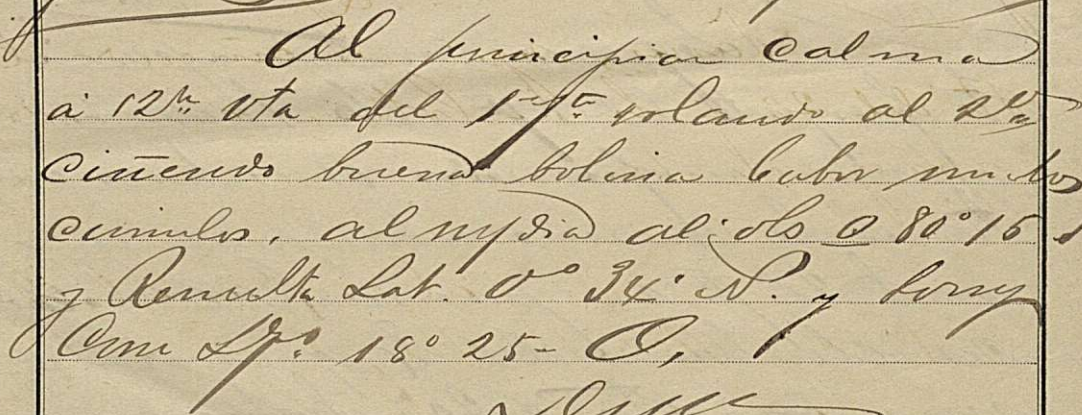 Al principiar calma
á 12hs vta del 1er rolando al 2do
ciñendo buena bolina babor mu los
cumulos, al mydia al obs 80° 15
y Resulta Lat. 0° 34' N. y Long
Cron 18° 25- O,